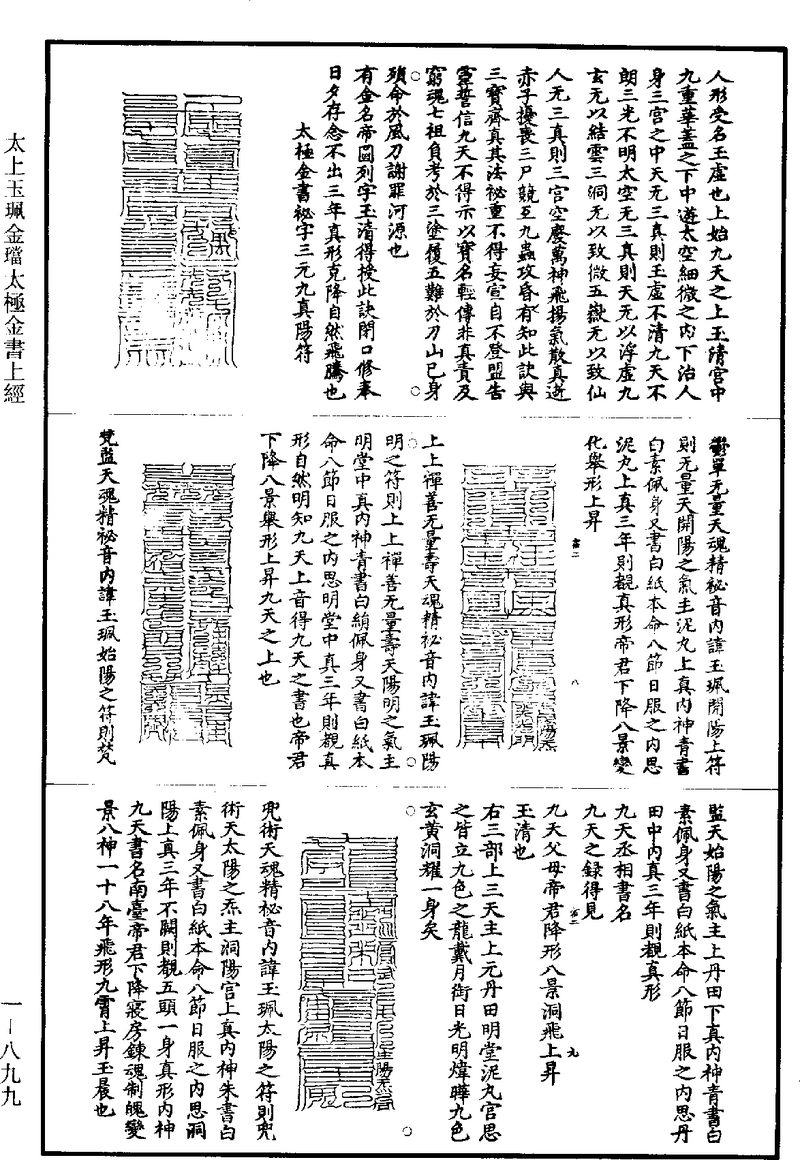 人形受名玉虛也上始九天之上玉清宮中
九重華蓋之下中遊太空細微之內下治人
身三宮之中天无三真則玉虛不清九天不
朗三光不明太空无三真則天无以浮虛九
玄无以結雲三洞无以致微五嶽无以致仙
人无三真則三宮空廢萬神飛揚氣散真逝
赤子擾喪三尸競至九蟲攻昏有知此訣與
三寶齊真其法祕重不得妄宣自不登盟告
靈誓信九天不得示以寶名輕傳非真責及
窮魂七祖負考於三塗履五難於刀山已身
殞命於風刀謝罪河源也
有金名帝圖列字玉清得授此訣閉口修奉
日夕存念不出三年真形克降自然飛騰也
太極金書祕字三元九真陽符
鬱單无量天魂精祕音內諱玉珮開陽上符
則无量天開陽之氣主泥丸上真內神青書
白素佩身又書白紙本命八節日服之內思
泥丸上真三年則覩真形帝君下降八景變
化舉形上昇
上上禪善无量壽天魂精祕音內諱玉珮陽
明之符則上上禪善无量壽天陽明之氣主
明堂中真內神青書白絹佩身又書白紙本
命八節日服之內思明堂中真三年則覩真
形自然明知九天上音得九天之書也帝君
下降八景舉形上昇九天之上也
梵監天魂精祕音內諱玉珮始陽之符則梵
監天始陽之氣主上丹田下真內神青書白
素佩身又書白紙本命八節日服之內思丹
田中內真三年則覩真形
九天丞相書名
九天之錄得見
九天父母帝君降形八景洞飛上昇
玉清也
右三部上三天主上元丹田明堂泥丸宮思
之皆立九色之龍戴月銜日光明煒曄九色
玄黃洞耀一身矣
兜術天魂精祕音內諱玉珮太陽之符則兜
術天太陽之炁主洞陽宮上真內神朱書白
素佩身又書白紙本命八節日服之內思洞
陽上真三年不闕則覩五頭一身真形內神
九天書名南臺帝君下降寢房鍊魂制魄變
景八神一十八年飛形九霄上昇玉晨也
太上玉珮金璫太極金書上經
一－八九九